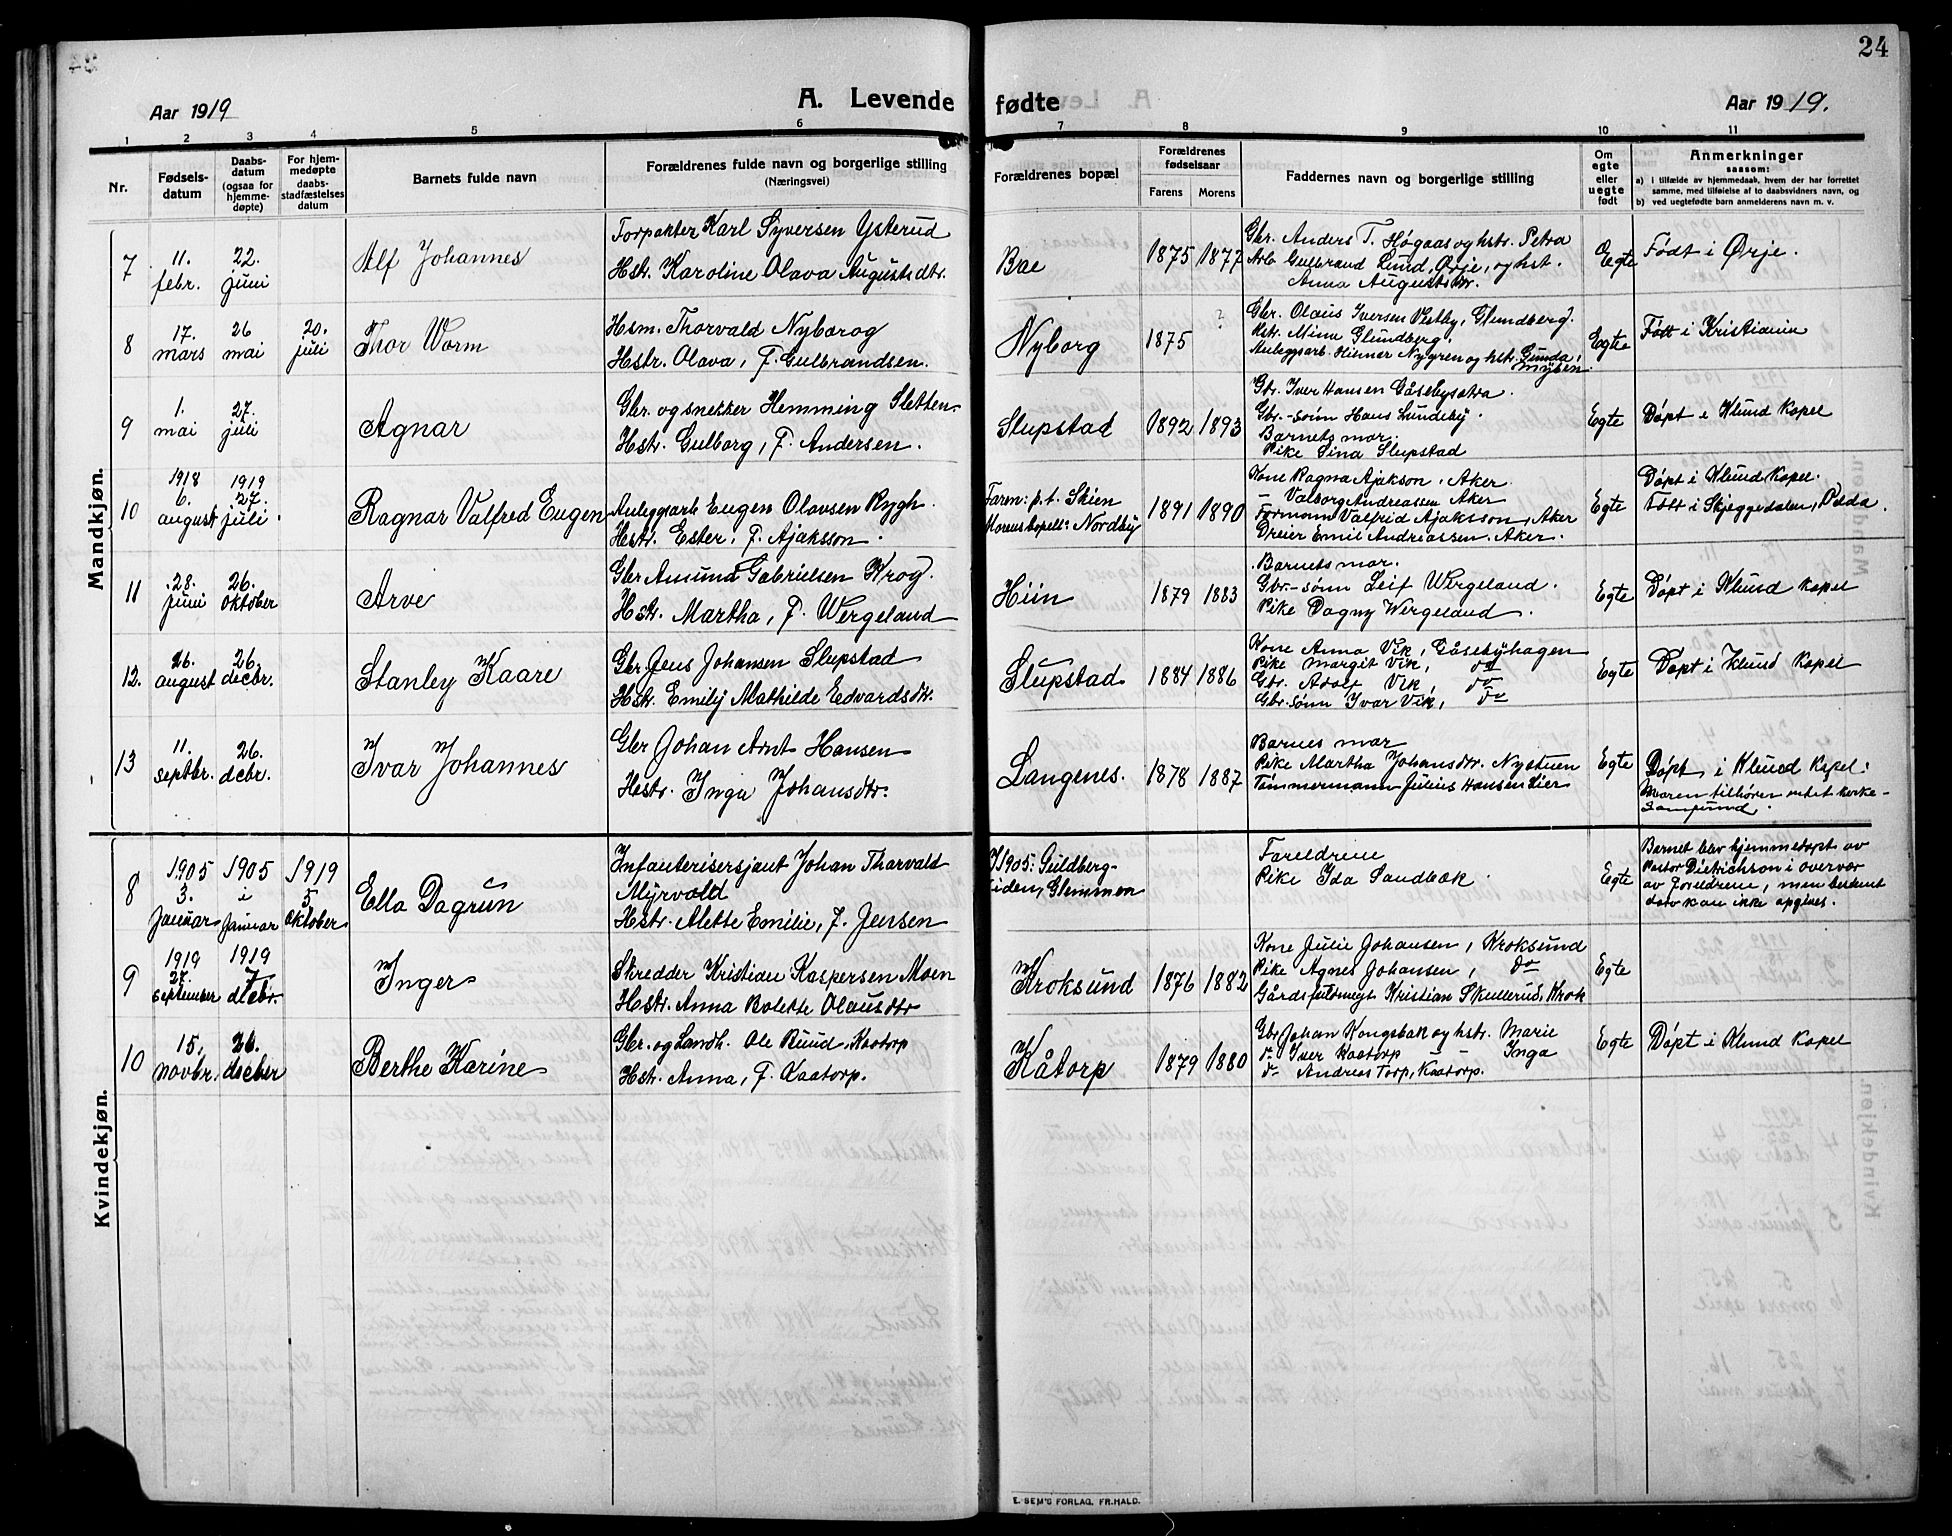 24
Aar 1919
A. Levende fødte
Aar 1919.
1 2 3 4 5 6 7 8 9 10 11
Nr.
Fødsels-
datum
Daabs-
datum
(ogsaa for
hjemme-
døpte)
For hjem-
medøpte
daabs-
stadfæstelses
datum
Barnets fulde navn
Forældrenes fulde navn og borgerlige stilling
(Næringsvei)
Forældrenes bopæl
Forældrenes
fødselsaar
Farens Morens
Faddernes navn og borgerlige stilling
Om
egte
eller
uegte
født
Anmerkninger
saasom:
a) i tilfælde av hjemmedaab, hvem der har forrettet
samme, med tilføielse af to daabsvidners navn, og
b) ved uegtefødte barn anmelderens navn m. v.
Mandkjøn.
7
11.
febr.
22.
juni
Alf Johannes
Forpakter Karl Syversen Ysterud
Hstr. Karoline Olava Augustsdtr.
Bae
1875 1877
Gbr. Anders T. Høgaas og hstr. Petra
Arb. Gulbrand Lund, Ørje, og hst.
Anna Augustsdtr.
Egte
Født i Ørje.
8
17.
mars
26
mai
20.
juli
Thor Worm
Hsm. Thorvald Nyborog
Hstr. Olava, f. Gulbrandsen.
Nyborg
1875 ?
Gbr. Olaus Iversen Vestby, Glundberg.
Hstr. Mina Glundberg.
Anlegsarb. Hilmer Nygren og hstr. Gunda,
Mysen.
Egte
Født i Kristiania
9
1.
mai
27.
juli
Agnar
Gbr. og snekker Hemming Sletten.
Hstr. Gulborg, f. Andersen.
Slupstad
1892 1893
Gbr. Iver Hansen Gåsebysætra.
Gbr.-sønn Hans Lundeby.
Barnets mor.
Pike Lina Slupstad
Egte
Døpt i Klund Kapel
10
1918
6.
august
1919
27.
juli.
Ragnar Valfred Eugen
Anleggsarb Eugen Olavsen Rygh.
Hstr. Ester, f. Ajaksson.
Faren: p.t. Skien
Morens bopell: Nordby
1891 1890
Kone Ragna Ajakson, Aker
– Valborg Andreassen Aker
Formann Valfrid Ajaksson, Aker
Dreier Emil Andreassen. Aker.
Egte
Døpt i Klund Kapel.
Født i Skjeggedalen, Odda.
11
28.
juni
26.
oktober
Arve
Gbr Amund Gabrielsen Krog.
Hstr. Martha, f. Wergeland
Hiin
1879 1883
Barnets mor.
Gbr.-sønn Leif Wergeland.
Pike Dagny Wergeland.
Egte
Døpt i Klund Kapel
12.
26.
august
26.
decbr.
Stanley Kaare
Gbr. Jens Johansen Slupstad
Hstr. Emily Mathilde Edvardsdtr.
Slupstad
1884 1886
Kone Anna Vik, Gåsebyhagen
Pike Margit Vik, do
Gbr. Adolf Vik, do
Gbr. sønn Ivar Vik, do
Egte
Døpt i Klund Kapel
13
11.
septbr.
26.
dcbr.
Ivar Johannes
Gbr Johan Arnt Hansen
Hstr. Inga Johansdtr.
Langenes.
1878 1887
Barnes mor
Pike Martha Johansdtr. Nystuen
Tømmermann Julius Hansen Lier
Egte
Døpt i Klund Kapel.
Moren tilhører intet kirke-
samfund.
Kvindekjøn.
8
1905
3.
Januar
1905
i
Januar
1919
5
oktober
Ella Dagrun
Infanterisersjant Johan Thorvald
Myrvold
Hstr. Alette Emilie, f. Jensen
I 1905: Guldberg-
siden, Glemmen
Foreldrene
Pike Ida Sandbæk.
Egte
Barnet blev hjemmedøpt av
Pastor Dietrichson i overvær
av foreldrene, men bestemt
dato kan ikke opgives.
9
1919
27.
september
1919
7
dcbr.
Inger
Skredder Kristian Kaspersen Moen
Hstr. Anna Bolette Olausdtr
Kroksund
1876 1882
Kone Julie Johansen, Kroksund
Pike Agnes Johansen, do
Gårdsfullmegt Kristian Skullerud, Krok
Egte
10
15.
novbr.
26.
decber
Berthe Karine
Gbr. og Landh. Ole Buud, Kaatorp
Hstr. Anna, f. Kaatorp.
Kåtorp
1879 1880
Gbr Johan Kongsbak og hstr. Marie
do Iver Kaatorp Inga
do Andreas Torp, Kaatorp.
Egte
Døpt i Klund Kapel
E. SEM'S FORLAG, FR.HALD.